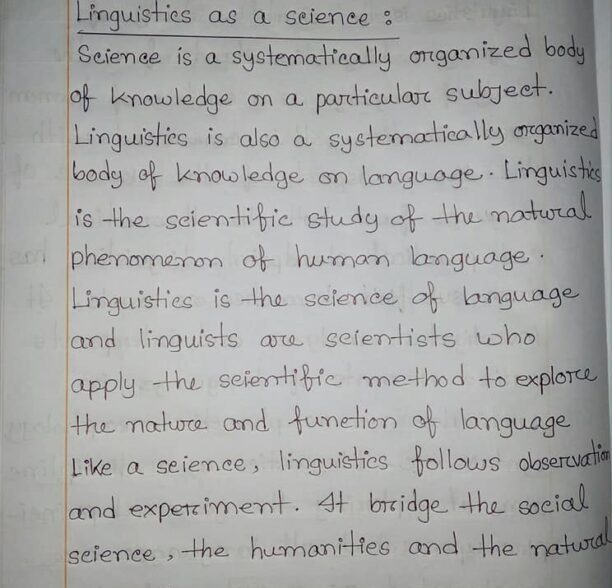 Linguistics as a science :
Science is a systematically organized body
of knowledge on a particular subject.
Linguistics is also a systematically organized
body of knowledge on language. Linguistics
is the scientific study of the natural
phenomenon of human language.
Linguistics is the science of language
and linguists are scientists who
apply the scientific method to explore
the nature and function of language
Like a science, linguistics follows observation
and experiment. It bridge the social
science, the humanities and the natural